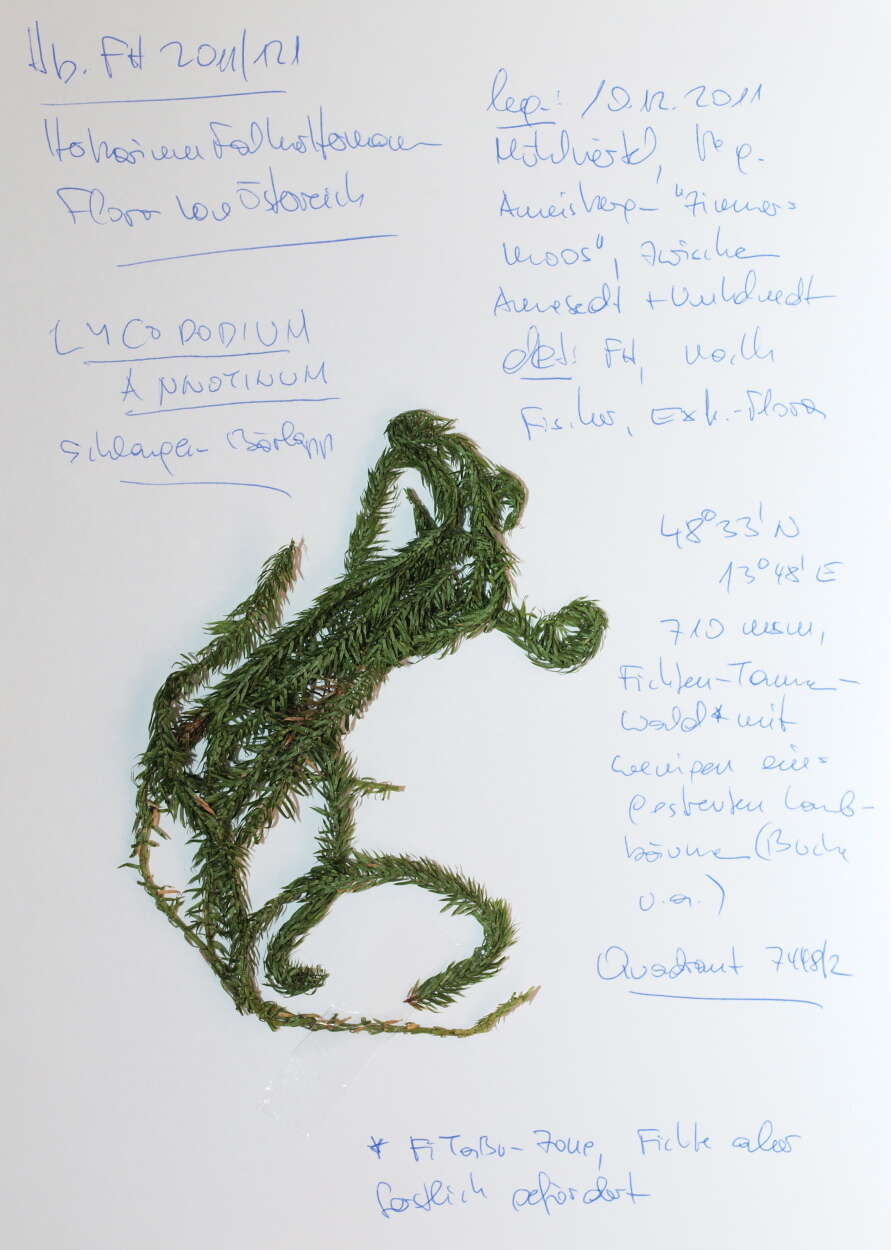 Hb. FH 2011/121
Herbarium Falk Hoffmann
Flora von Österreich
LYCOPODIUM
ANNOTINUM
Schlangen-Bärlapp
leg.: 10.12.2011
Mühlviertel,
Ameisberg- "Zimmer=
moos", zwischen
Amesedt +
det: FH, nach
Fischer, Exk.-Flora
48°33' N
13°48' E
710 msm,
Fichten-Tannen-
wald* mit
wenigen ein=
gestreuten Laub-
bäumen (Buche
u.a.)
Quadrant 7448/2
* FiTaBu-Zone, Fichte aber
forstlich gefördert